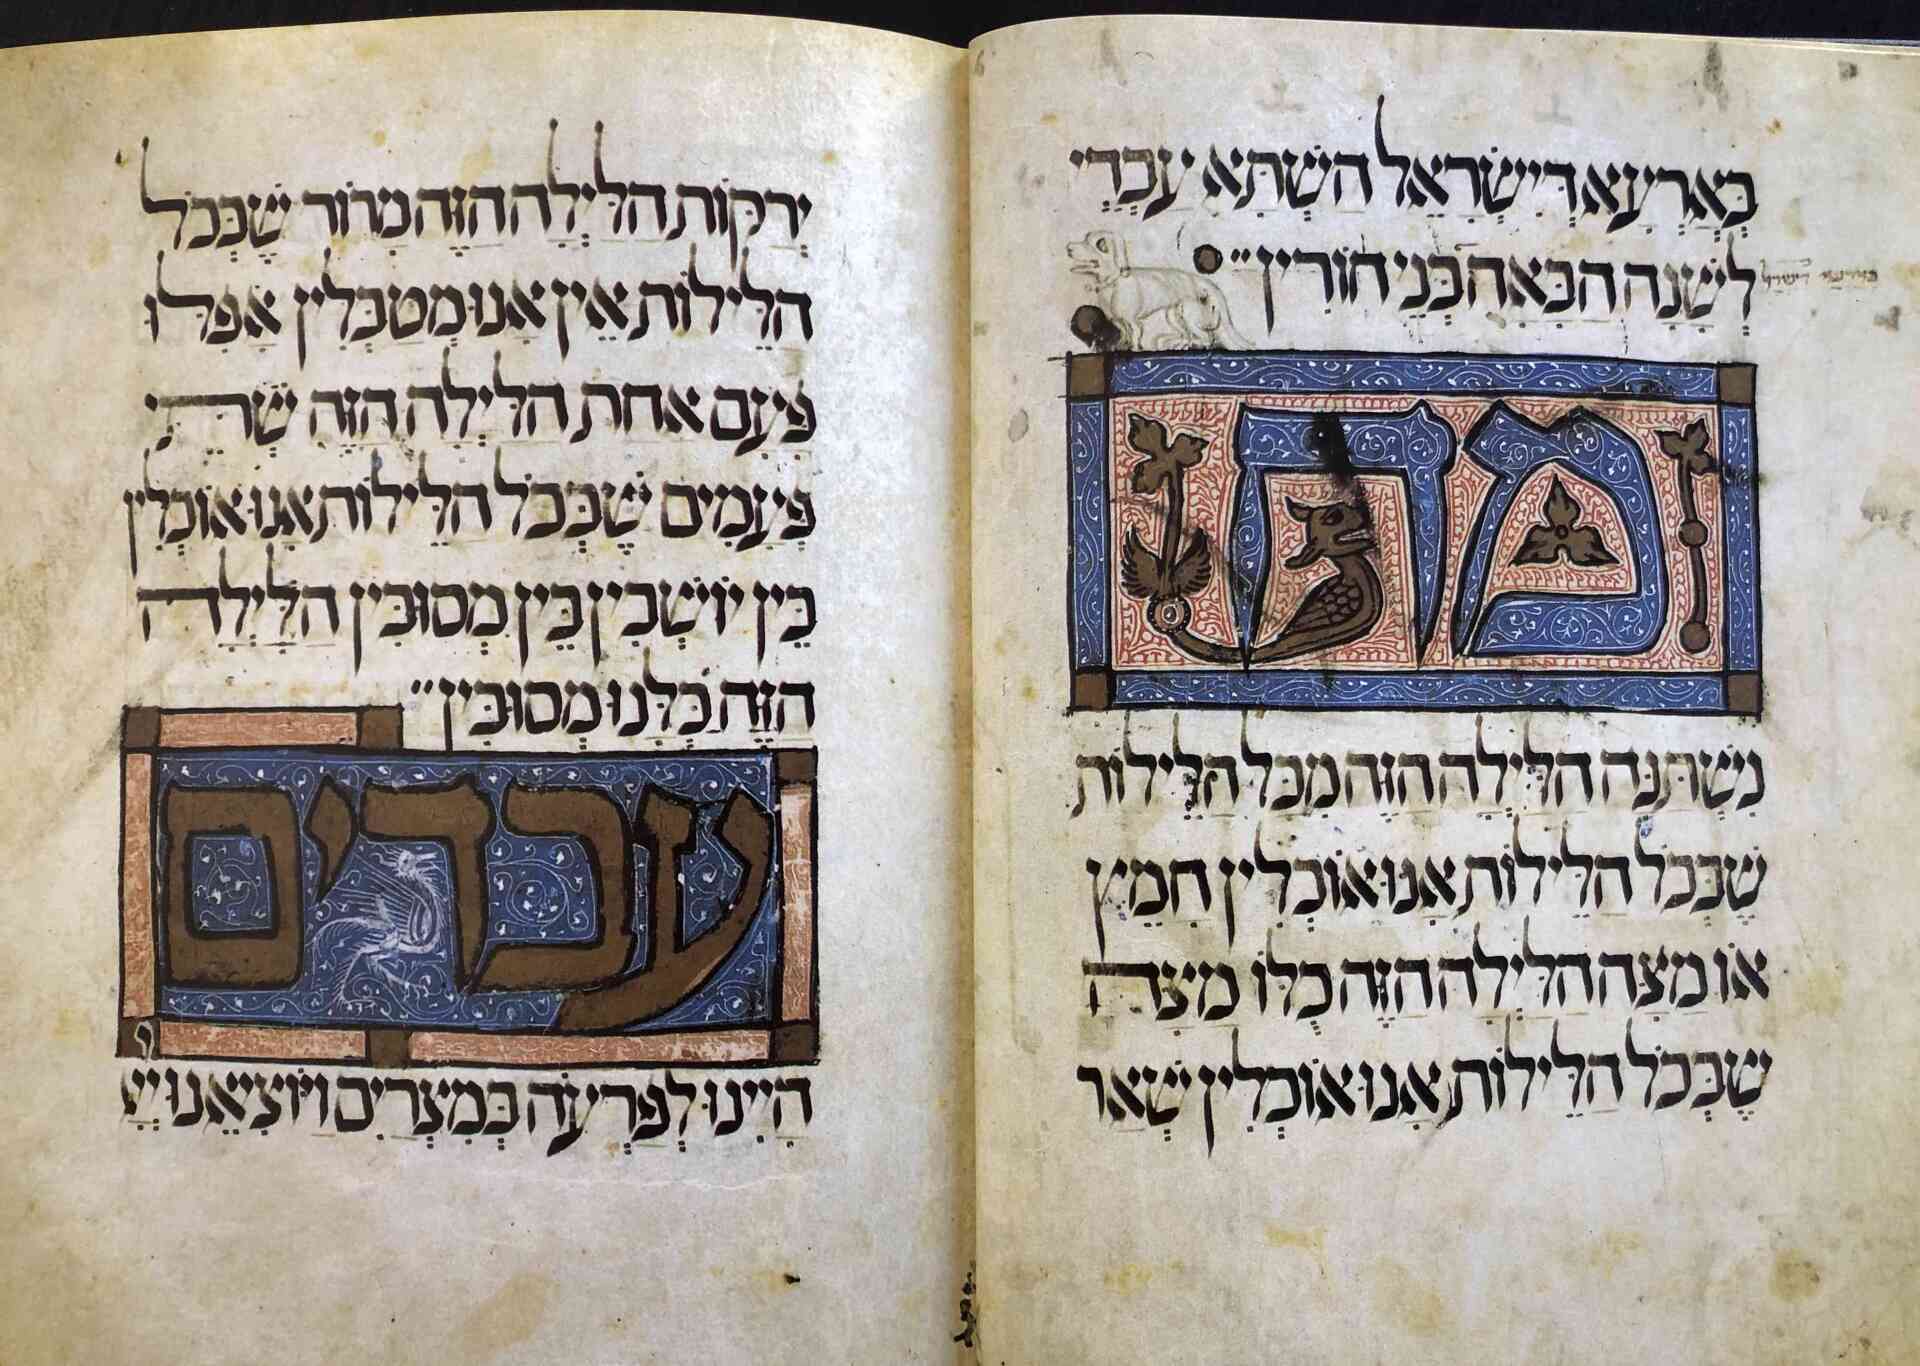 בְּאַרְעָא דְּיִשְׂרָאֵל הַשַּׁתָּא עַבְדֵי
לְשָׁנָה הַבָּאָה בְּנֵי חוֹרִין״
מה
נִּשְׁתַּנָּה הַלַּיְלָה הַזֶּה מִכָּל הַלֵּילוֹת
שֶׁבְּכָל הַלֵּילוֹת אָנוּ אוֹכְלִין חָמֵץ
אוֹ מַצָּה הַלַּיְלָה הַזֶּה כֻּלּוֹ מַצָּה
שֶׁבְּכָל הַלֵּילוֹת אָנוּ אוֹכְלִין שְׁאָר
יְרָקוֹת הַלַּיְלָה הַזֶּה מָרוֹר שֶׁבְּכָל
הַלֵּילוֹת אֵין אָנוּ מְטַבְּלִין אֲפִלּוּ
פַּעַם אַחַת הַלַּיְלָה הַזֶּה שְׁתֵּי
פְּעָמִים שֶׁבְּכָל הַלֵּילוֹת אָנוּ אוֹכְלִין
בֵּין יוֹשְׁבִין בֵּין מְסוּבִּין הַלַּיְלָה
הַזֶּה כֻּלָּנוּ מְסוּבִּין״
עבדים
הָיִינוּ לְפַרְעֹה בְּמִצְרַיִם וַיּוֹצִיאֵנוּ יְיָ